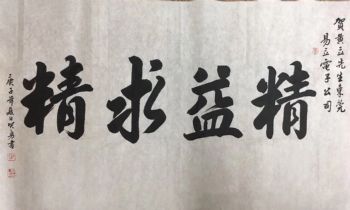 賀黃立先生東莞
易立電子公司
精益求精
庚子
書